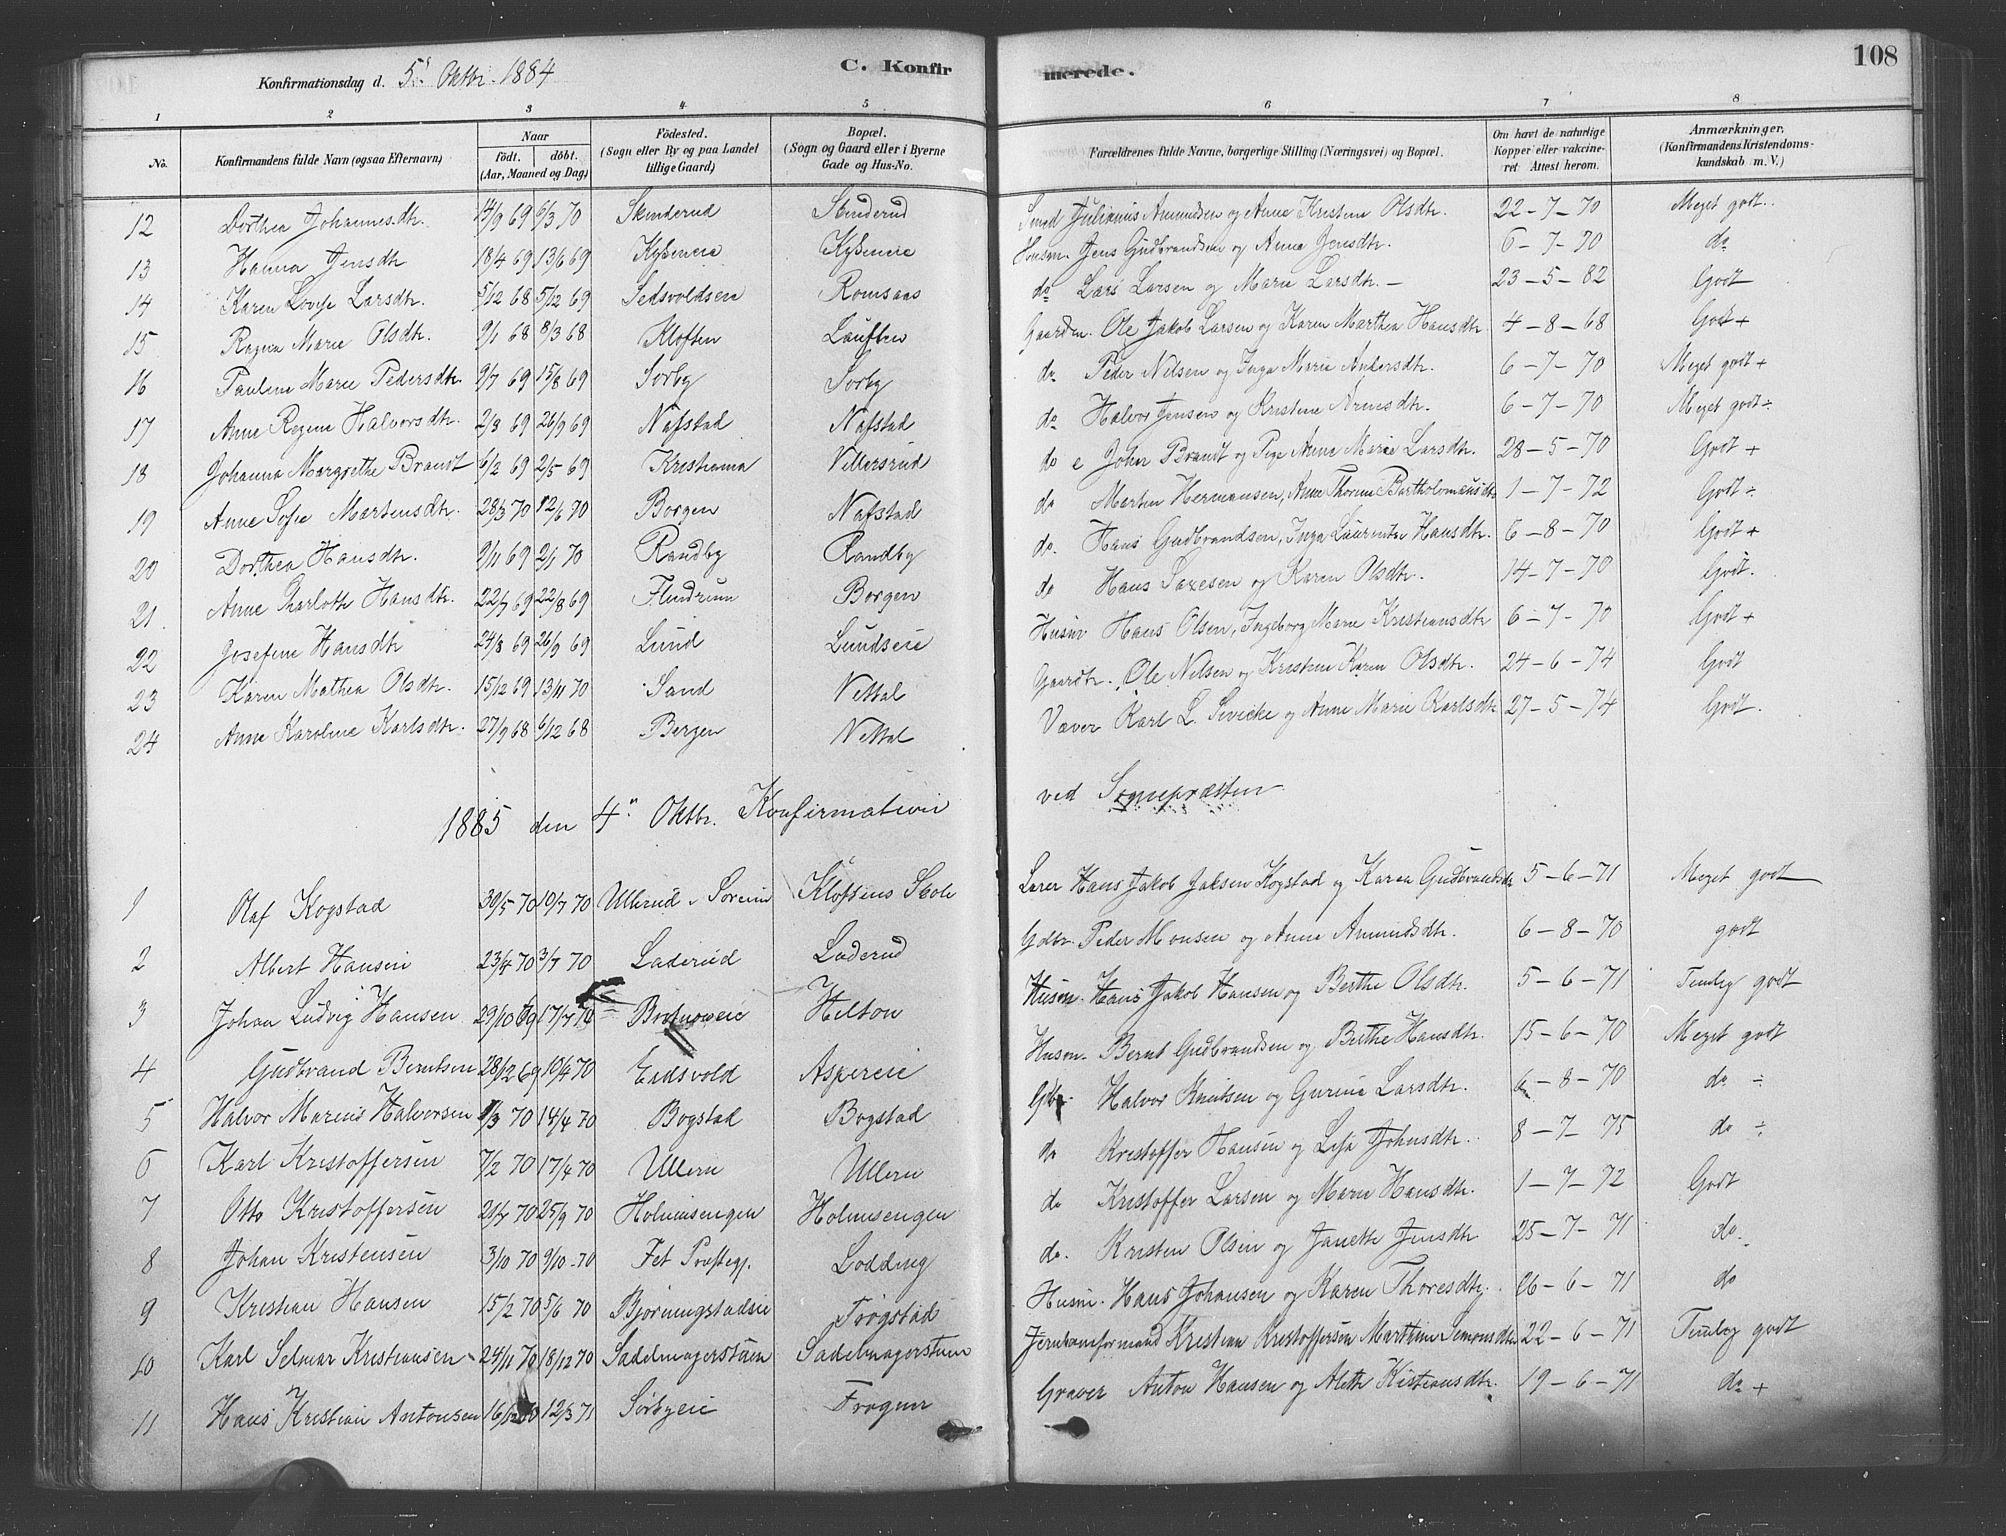 108
Konfirmationsdag d. 5te Oktbr. 1884 C. Konfirmerede.
1 2 3 4 5 6 7 8
No. Konfirmandens fulde Navn (ogsaa Efternavn) Naar født. døbt. (Aar, Maaned og Dag) Fødested. (Sogn eller By og paa Landet tillige Gaard) Bopæl. (Sogn og Gaard eller i Byerne Gade og Hus-No. Forældrenes fulde Navne, borgerlige Stilling (Næringsvei) og Bopæl. Om havt de naturlige Kopper eller vakcineret Attest herom. Anmærkninger. (Konfirmandens Kristendomskundskab m. V.)
12 Dorthea Johannesdtr. 14/9 69 6/3 70 Skinderud Skinderud Julianus Amundsen og Anne Kristine Olsdtr. 22-7-70 Meget godt.
13 Hanna Jensdtr 18/4 69 13/6 69 Husm. Jens Gudbrandsen og Anna Jensdtr. 6-7-70 do
14 Karen Lovise Larsdtr. 5/12 68 5/12 69 Romsaas do Lars Larsen og Marie Larsdtr. - 23-5-82 Godt
15 Marie Olsdtr. 9/1 68 8/3 68 Kloften Gaardm. Ole Jakob Larsen og Karen Marthea Hansdtr. 4-8-68 Godt +
16 Pauline Marie Pedersdtr. 9/7 69 15/8 69 Sørby Sørby do Peder Nilsen og Inga Marie Andersdtr. 6-7-70 Meget godt +
17 Anne Regine Halvorsdtr. 2/8 69 26/9 69 Nafstad Nafstad do Halvor Jensen og Kristine Arnesdtr. 6-7-70 Meget godt ÷
18 Johanna Margrethe Brandt 6/2 69 2/5 69 Kristiania do e John Brandt og Pige Anne Marie Larsdtr. 28-5-70 Godt +
19 Anne Sofie Martensdtr. 28/3 70 12/6 70 Borgen Nafstad do Marten Hermansen, Anne Thorine Bartholomæusdtr 1-7-72 Godt ÷
20 Dorthea Hansdtr. 9/11 69 2/1 70 Randby Randby do Hans Gudbrandsen, Inga Laurentse Hansdtr. 6-8-70 Godt +
21 Anne Charlotte Hansdtr. 22/7 69 22/8 69 Flindrum Borgen do Hans og Karen Olsdtr. 14-7-70 Godt.
22 Josefine Hansdtr 24/8 69 26/9 69 Lund Lundseie Husm Hans Olsen, Ingeborg Marie Kristiansdtr 6-7-70 Godt +
23 Karen Mathea Olsdtr. 15/12 69 13/11 70 Sand Nettal Gaardbr. Ole Nilsen og Kristine Karen Olsdtr. 24-6-74 Godt
24 Anne Karoline Karlsdtr. 27/9 68 6/12 68 Bergen Nettal Væver Karl L. og Anne Marie Karlsdtr 27-5-74 Godt.
1885 den 4de Oktbr. Konfirmation ved Sognepræsten
1 Olaf Kogstad 30/5 70 10/7 70 Ullerud i Sørum Kloftens Skole Lærer Hans Jakob Kogstad og Karen Gudbrandsdtr 5-6-71 Meget godt
2 Albert Hansen 23/4 70 3/7 70 Laderud Laderud Gdbr. Peder Monsen og Anne Amundsdtr. 6-8-70 godt
3 Johan Ludvig Hansen 29/10 69 17/7 70 Helton Husm. Hans Jakob Hansen og Berthe Olsdtr. 5-6-71 Temlig godt
4 Gudbrand Berntsen 28/12 69 10/4 70 Eidsvold Aspereie Husm. Bernt Gudbrandsen og Berthe Hansdtr. 15-6-70 Meget godt
5 Halvor Marius Halvorsen 1/3 70 14/4 70 Bogstad Bogstad Gdbr. Halvor Knutsen og Gurine Larsdtr. 6-8-70 do ÷
6 Karl Kristoffersen 7/2 70 17/4 70 Ullern Ullern do Kristoffer Hansen og Johnsdtr. 8-7-75 do ÷
7 Otto Kristoffersen 21/7 70 25/9 70 Holmsengen Holmsengen do Kristoffer Larsen og Marie Hansdtr. 1-7-72 Godt
8 Johan Kristensen 3/10 70 9/10 70 Fet Præstegj. Lodding do. Kristen Olsen og Janette Jensdtr 25-7-71 do.
9 Kristian Hansen 15/2 70 5/6 70 Bjørningstadeie Frogstad Husm. Hans Johansen og Karen Thoresdtr. 26-6-71 do
10 Karl Selmar Kristiansen 24/11 70 18/12 70 Sadelmagerstuen Sadelmagerstuen Jernbaneformand Kristian Kristoffersen Marthine Simonsdtr 22-6-71 Temlig godt
11 Hans Kristian Antonsen 16/12 70 12/3 71 Sørbyeie Frogner Graver Anton Hansen og Alette Kristiansdtr. 19-6-71 do +